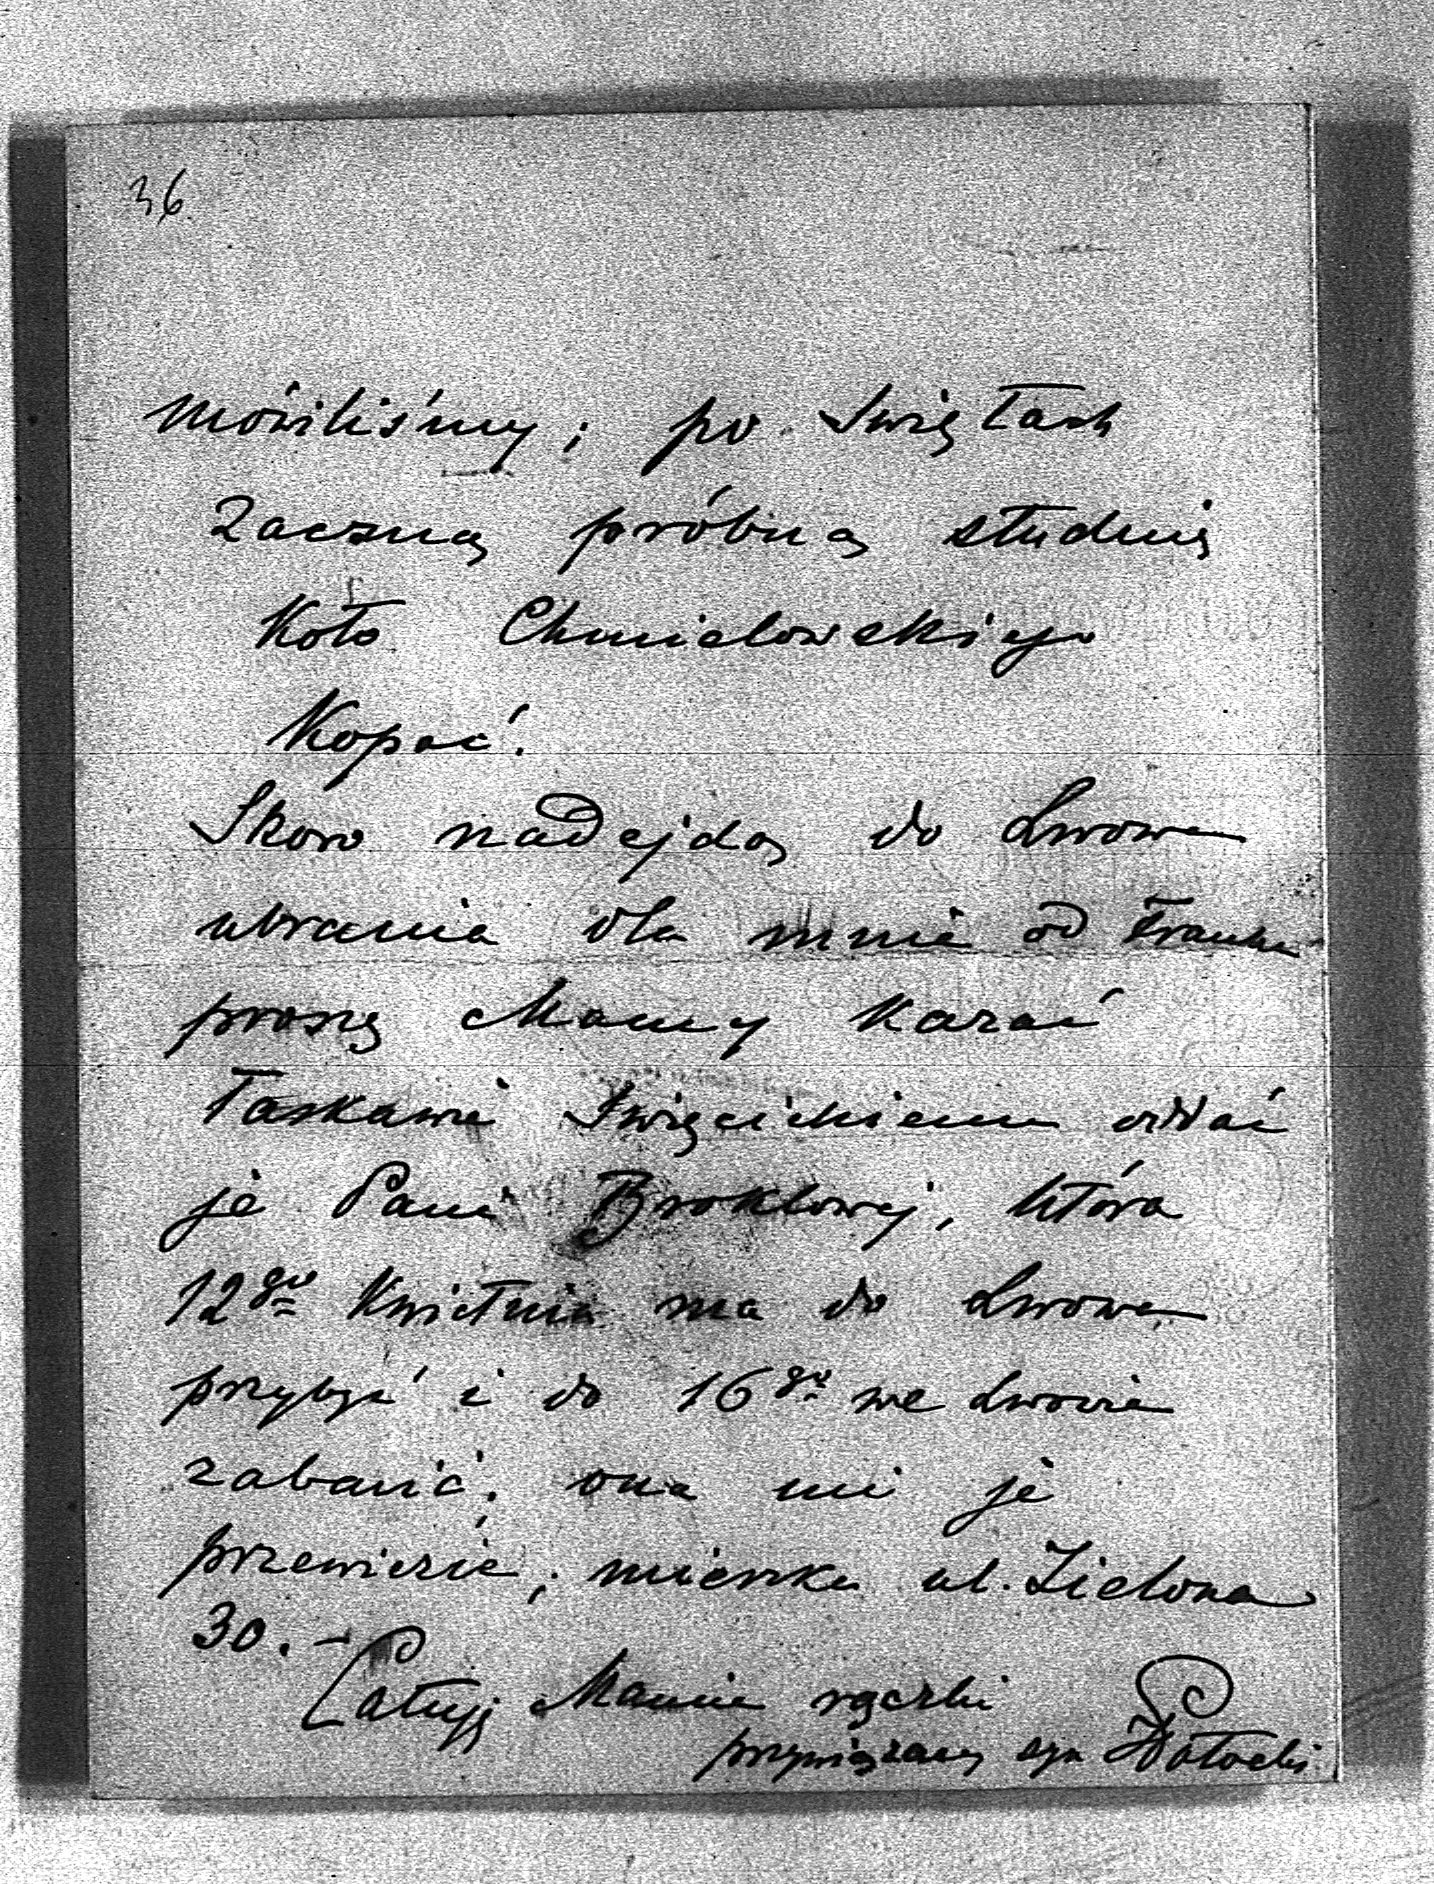 36
mówiliśmy; po Świętach
zaczną próbną studnię
koło Chmielowskiego
kopać.
Skoro nadejdą do Lwowa
ubrania dla mnie od Franka
proszę Mamy kazać
łaskawie Święcickiemu oddać
je Pani Broklowej, która
12go Kwietnia ma do Lwowa
przybyć i do 16go we Lwowie
zabawić; ona mi je
przewiezie; mieszka ul. Zielona
30. –
Całuję Mamie rączki
przywiązany syn Potocki